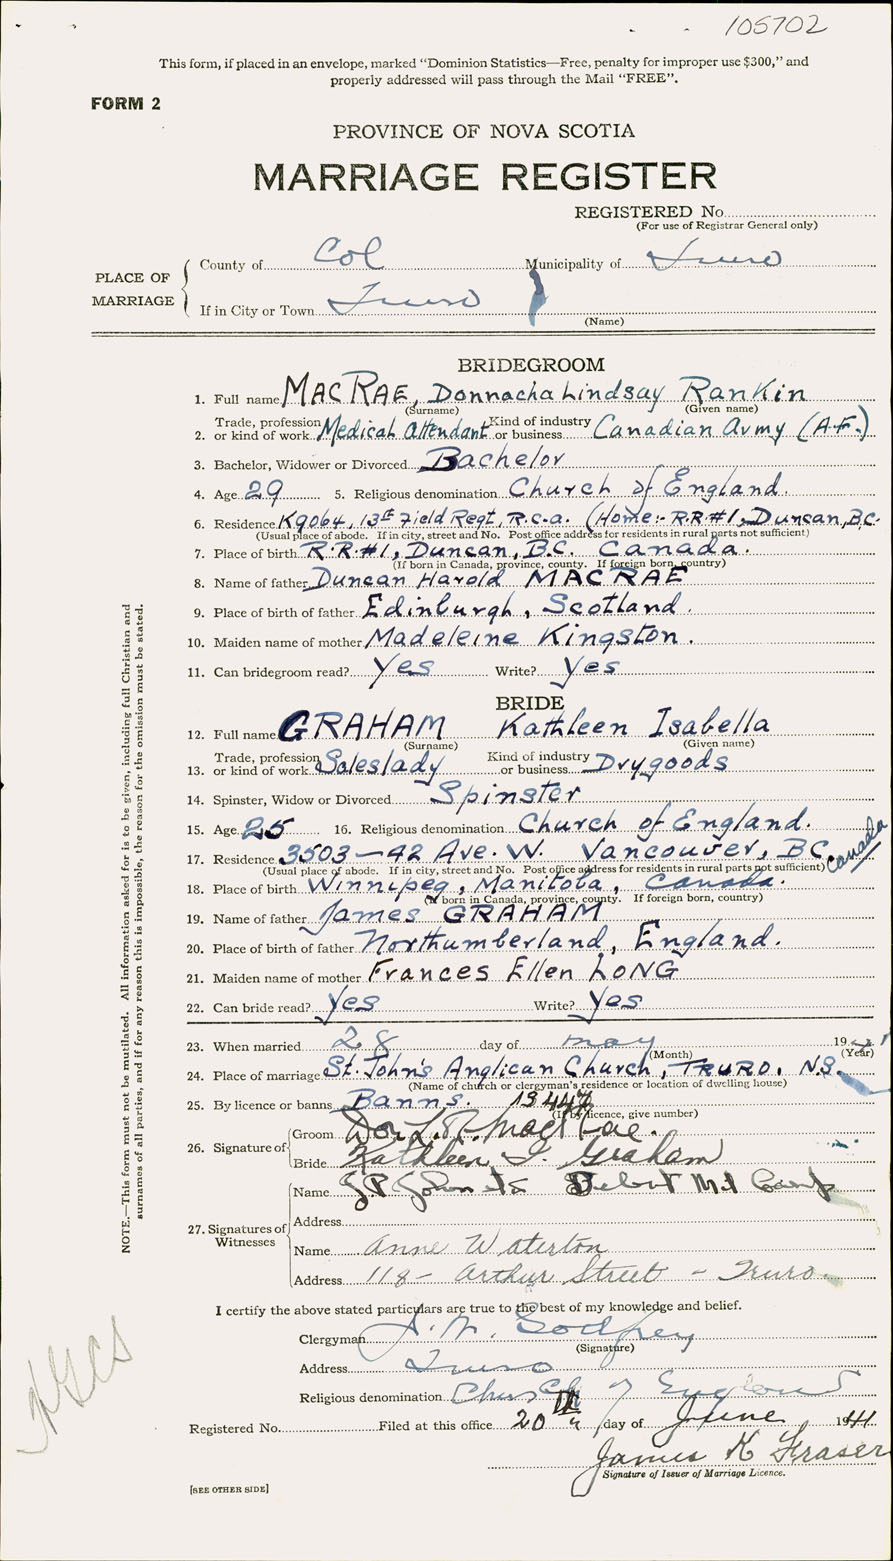 105702
This form, if placed in an envelope, marked "Dominion Statistics—Free, penalty for improper use $300," and
properly addressed will pass through the Mail "FREE".
FORM 2
PROVINCE OF NOVA SCOTIA
MARRIAGE REGISTER
REGISTERED No.
(For use of Registrar General only)
PLACE OF MARRIAGE
County of Col Municipality of Truro
If in City or Town Truro
(Name)
BRIDEGROOM
1. Full name MACRAE, Donnacha Lindsay Rankin
(Surname) (Given name)
2. Trade, profession or kind of work Medical Attendant Kind of industry or business Canadian Army (A.F.)
3. Bachelor, Widower or Divorced Bachelor
4. Age 29 5. Religious denomination Church of England.
6. Residence K9064, 13th Field Regt, R.C.A. (Home:- R.R#1, Duncan, B.C.
(Usual place of abode. If in city, street and No. Post office address for residents in rural parts not sufficient)
7. Place of birth R.R.#1, Duncan, B.C. Canada.
(If born in Canada, province, county. If foreign born, country)
8. Name of father Duncan Harold MACRAE
9. Place of birth of father Edinburgh, Scotland.
10. Maiden name of mother Madeleine Kingston.
11. Can bridegroom read? Yes Write? Yes
BRIDE
12. Full name GRAHAM Kathleen Isabella
(Surname) (Given name)
13. Trade, profession or kind of work Saleslady Kind of industry or business Drygoods
14. Spinster, Widow or Divorced Spinster
15. Age 25 16. Religious denomination Church of England.
17. Residence 3503-42 Ave. W. Vancouver, BC Canada
(Usual place of abode. If in city, street and No. Post office address for residents in rural parts not sufficient)
18. Place of birth Winnipeg, Manitoba, Canada.
(If born in Canada, province, county. If foreign born, country)
19. Name of father James GRAHAM
20. Place of birth of father Northumberland, England.
21. Maiden name of mother Frances Ellen LONG
22. Can bride read? Yes Write? Yes
23. When married 28 day of May 19
(Month) (Year)
24. Place of marriage St. John's Anglican Church, TRURO. N.S.
(Name of church or clergyman's residence or location of dwelling house)
25. By licence or banns Banns.
(If by licence, give number)
26. Signature of
Groom Don L.R. MacRae.
Bride Kathleen I. Graham
27. Signatures of Witnesses
Name Debert Mil Camp
Address
Name Anne Waterton
Address 118- Arthur Street - Truro.
I certify the above stated particulars are true to the best of my knowledge and belief.
Clergyman Godfrey
(Signature)
Address Truro
Religious denomination Church of England
Registered No. Filed at this office 20th day of June 1941
James K Fraser
Signature of Issuer of Marriage Licence.
[SEE OTHER SIDE]
NOTE.—This form must not be mutilated. All information asked for is to be given, including full Christian and
surnames of all parties, and if for any reason this is impossible, the reason for the omission must be stated.